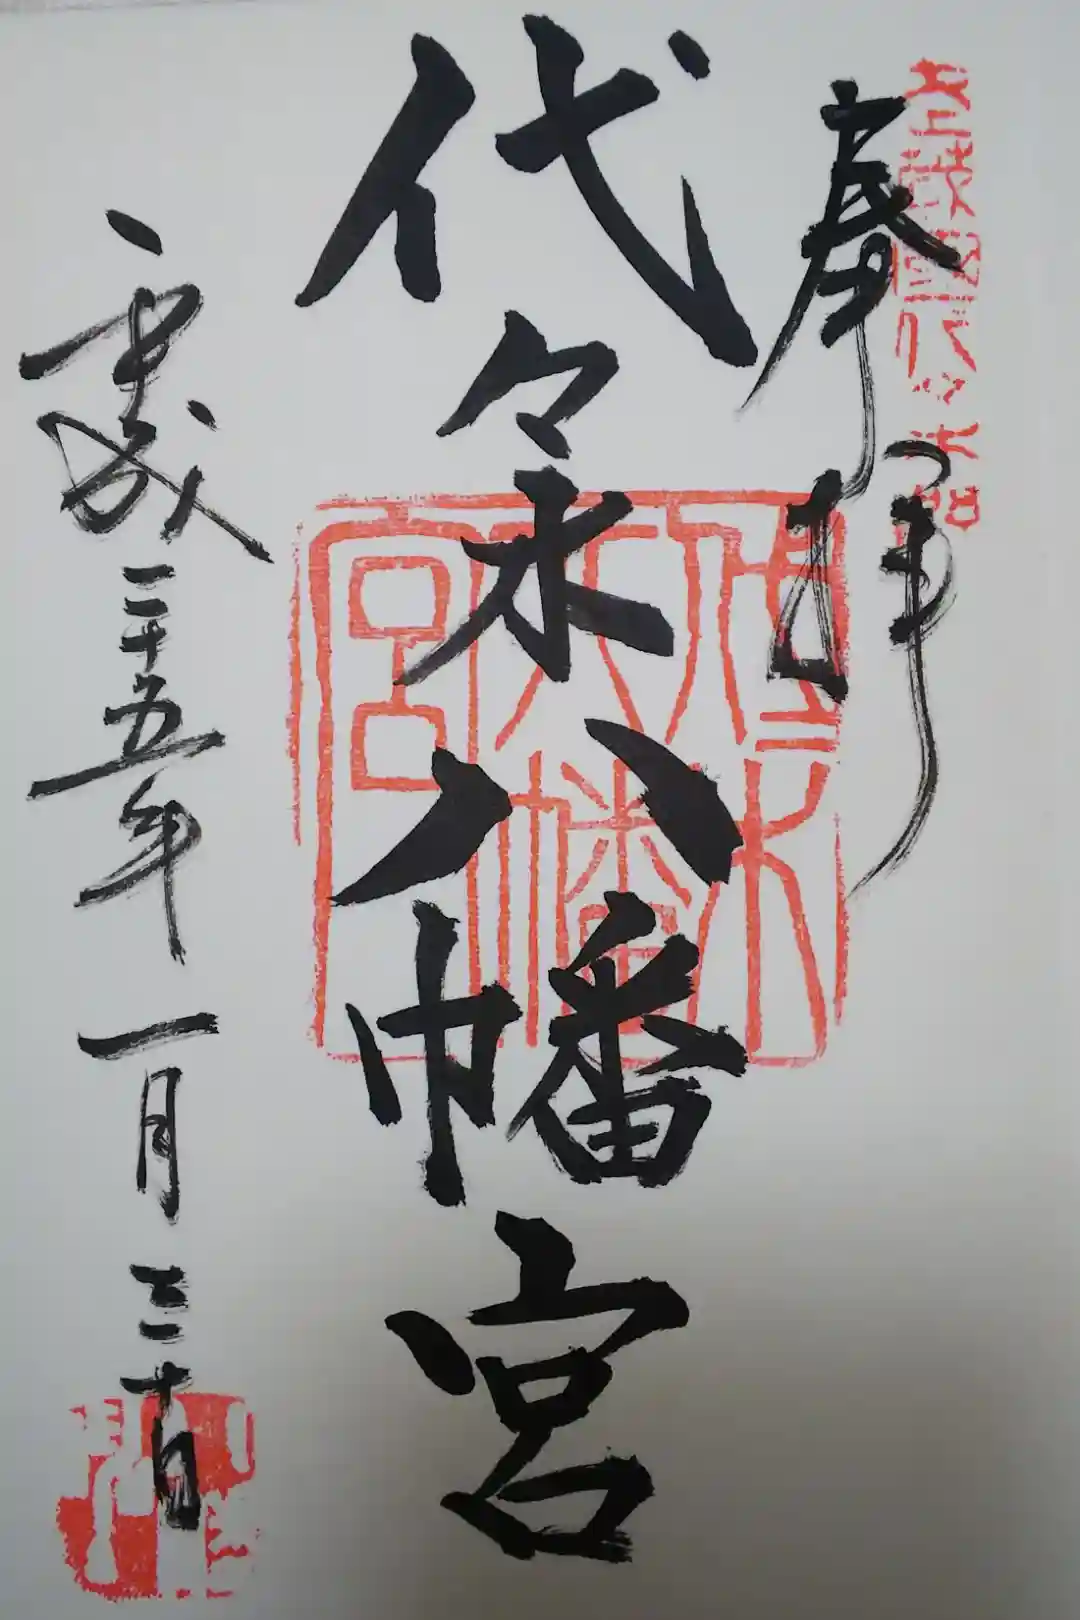 武蔵國代々木
奉拝
代々木八幡宮
代々木
八幡
宮
平成二十五年一月三十日